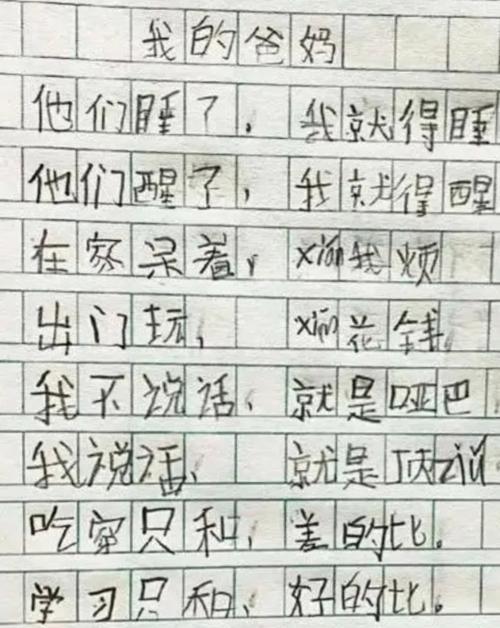 我的爸妈
他们睡了，我就得睡
他们醒了，我就得醒
在家呆着，xián我烦
出门玩，xián花钱
我不说话，就是哑巴
我说话，就是顶zuǐ
吃穿只和，差的比。
学习只和，好的比。